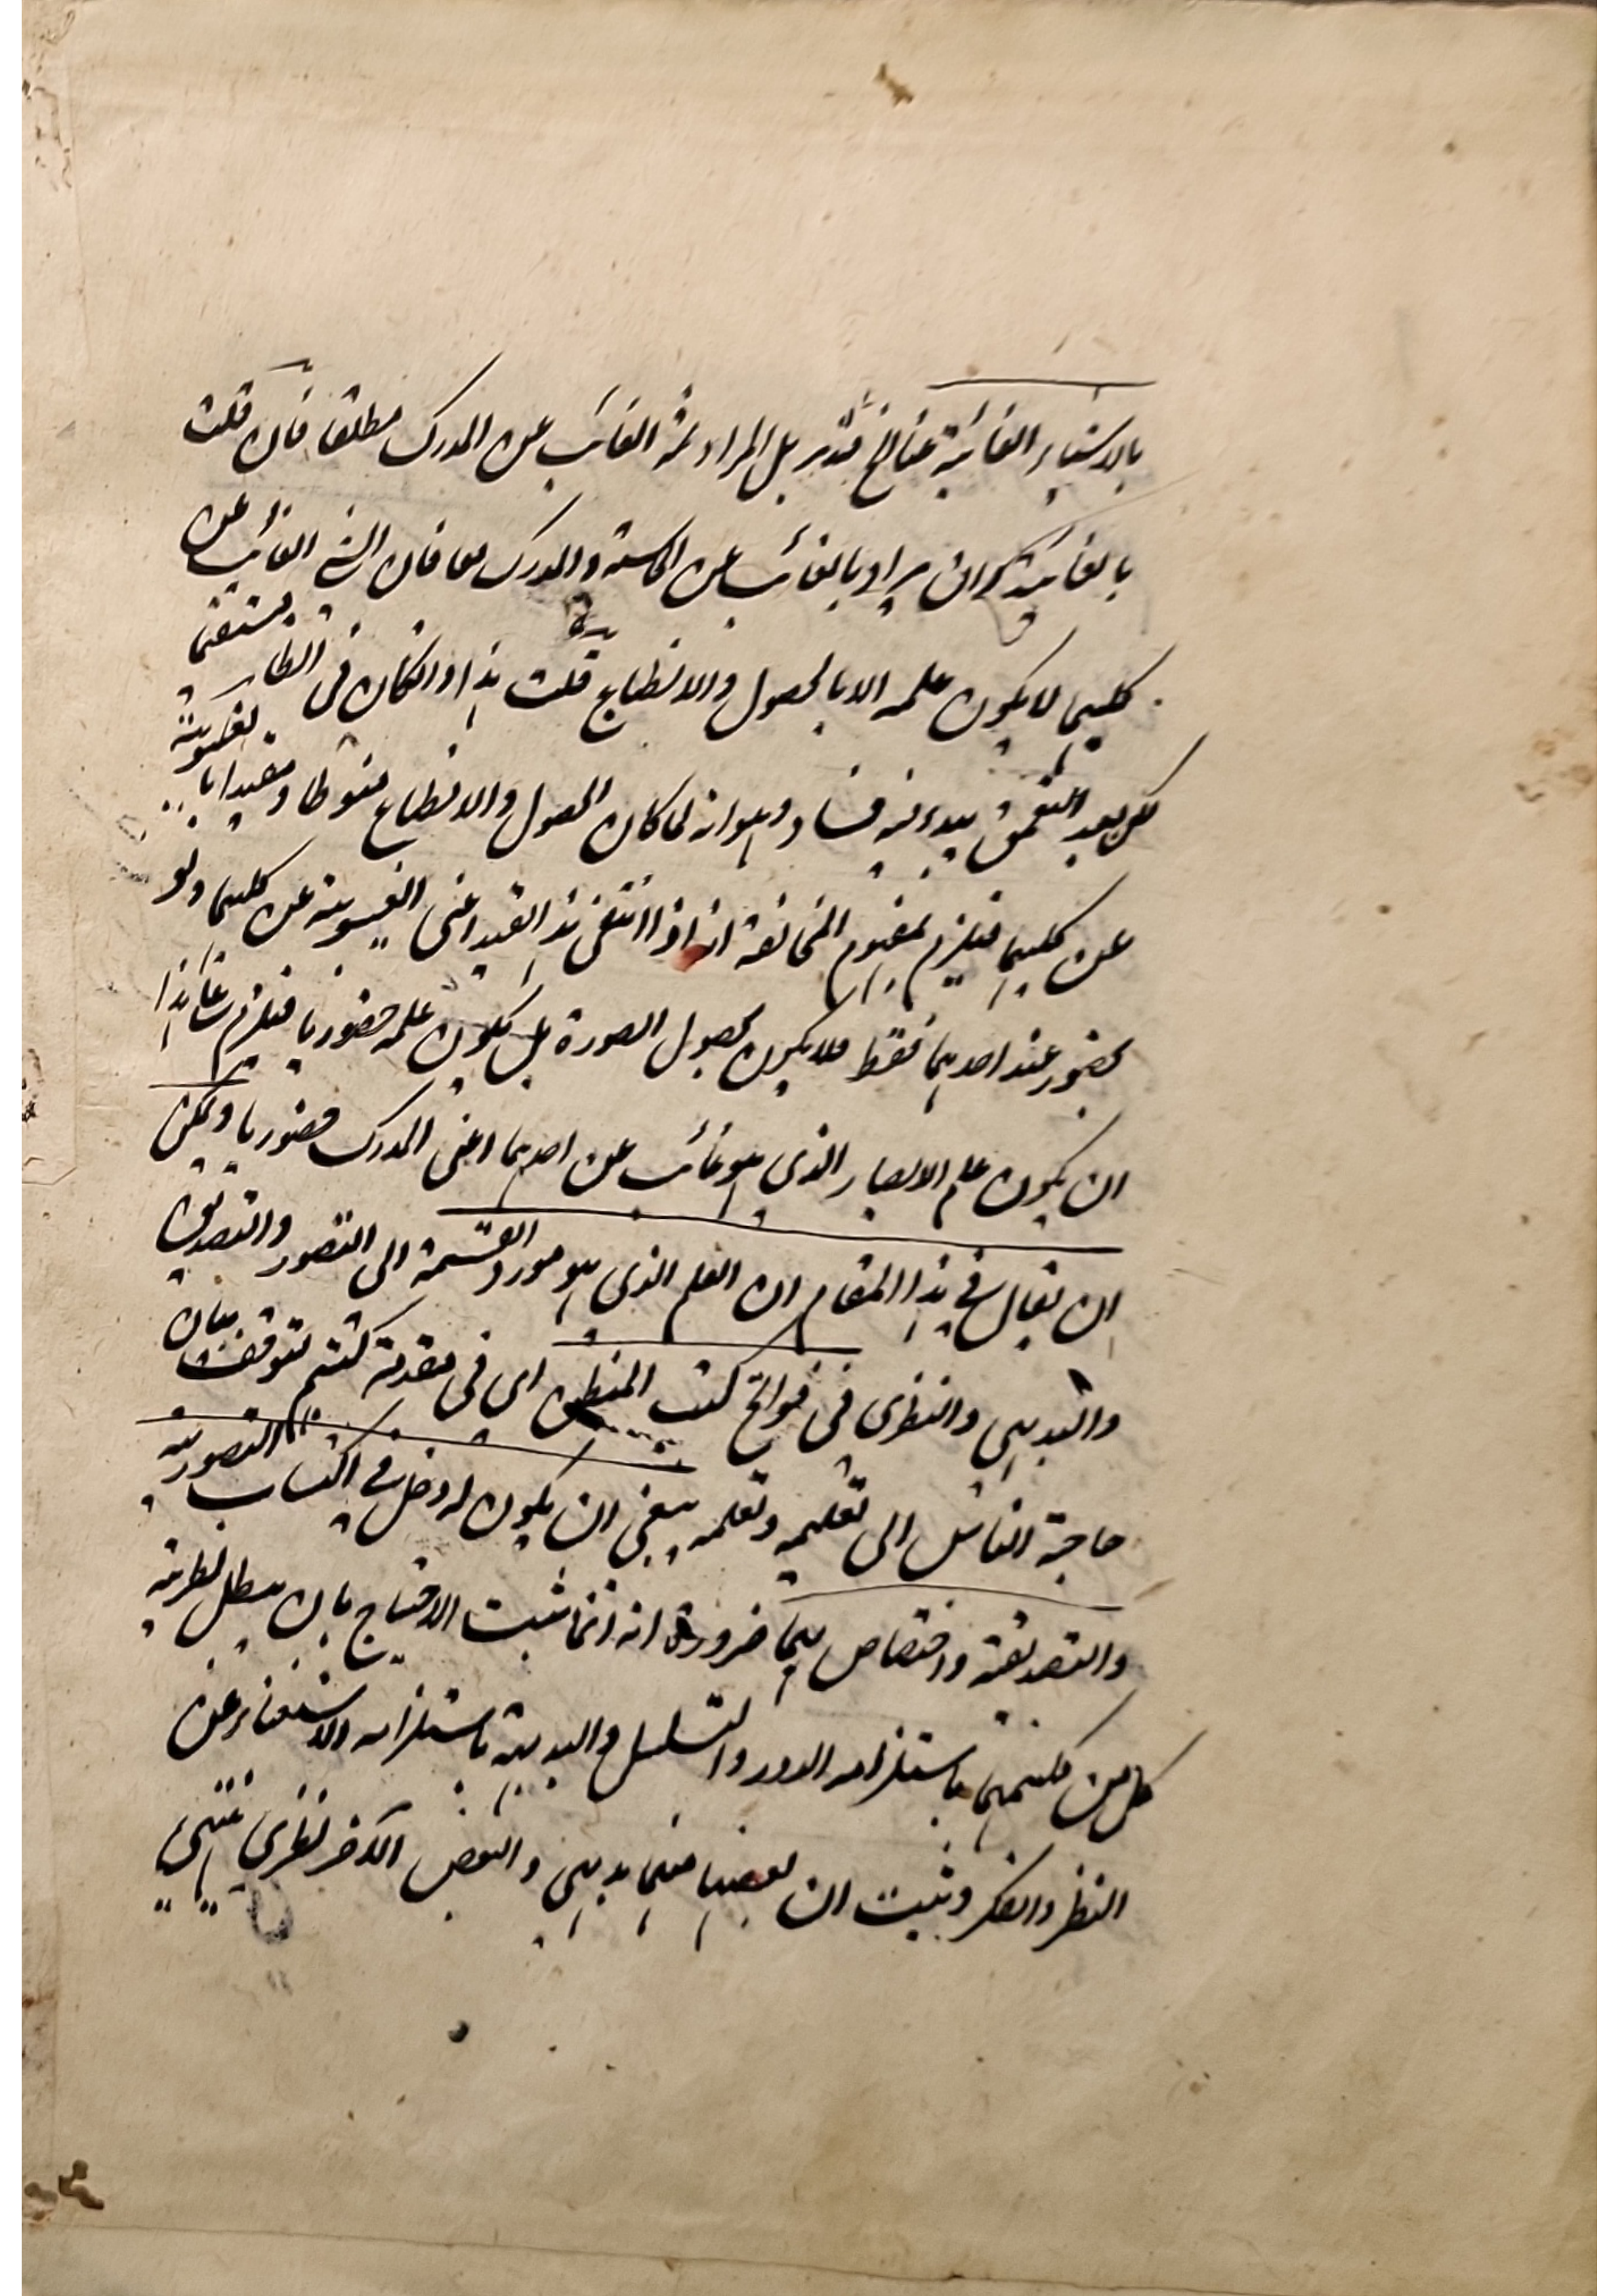 بالاشياء الغائبة عنا الخ فتدبر بل المراد ثمة الغائب عن المدرك مطلقا فان قلت
بالغائبة ان يراد بالغائب عن الحاسة والمدرك معا فان الشئ الغائب عن
كليهما لا يكون علمه الا بالحصول والانطباع قلت هذا وانكان فى الظاهر
لكن بعد التعمق يبدء فيه فساد وهو انه لما كان الحصول والانطباع منوطا ومقيدا بالغيبوبة
عن كليهما فيلزم بمفهوم المخالفة انه اذا انتفى هذا القيد اعنى الغيبوبة عن كليهما ولو
بحضور عند احديهما فقط فلا يكون بحصول الصورة بل يكون علمه حضوريا فيلزم على هذا
ان يكون علم الابصار الذى هو غائب عن احديهما اعنى المدرك حضوريا ويمكن
ان يقال فى هذا المقام ان العلم الذى هو مورد القسمة الى التصور والتصديق
والبديهى والنظرى فى فواتح كتب المنطق اى فى مقدمة كتبهم لتوقف بيان
حاجة الناس الى تعليمه وتعلمه ينبغى ان يكون له دخل فى اكتساب التصورية
والتصديقية واختصاص بهما ضرورة انه انما يثبت الاحتياج بان يبطل نظرية
كل من كليهما باستلزامه الدور والتسلسل والبديهية باستلزامه الاستغناء عن
النظر والفكر وثبت ان بعضها منهما بديهى والبعض الآخر نظرى